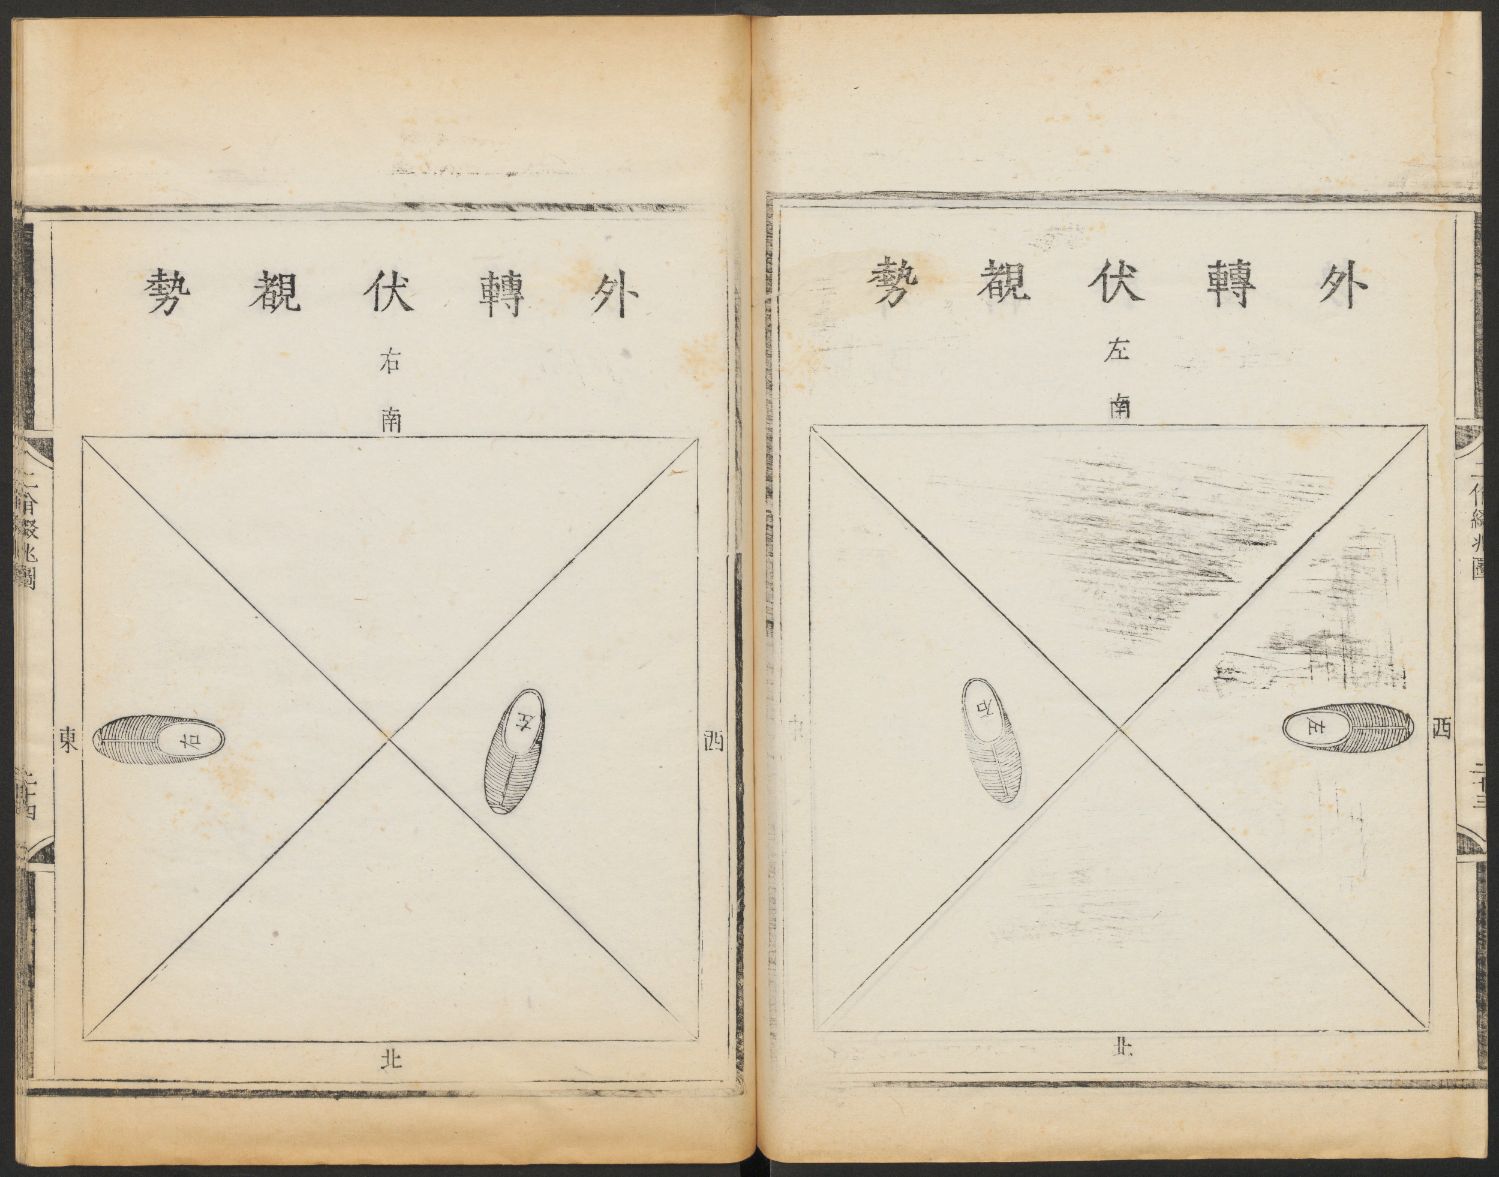 外轉伏覩勢
左
南
右
左
西
北
二佾綴兆圖
二十三
外轉伏覩勢
右
南
東
右
左
西
北
二佾綴兆圖
二十四